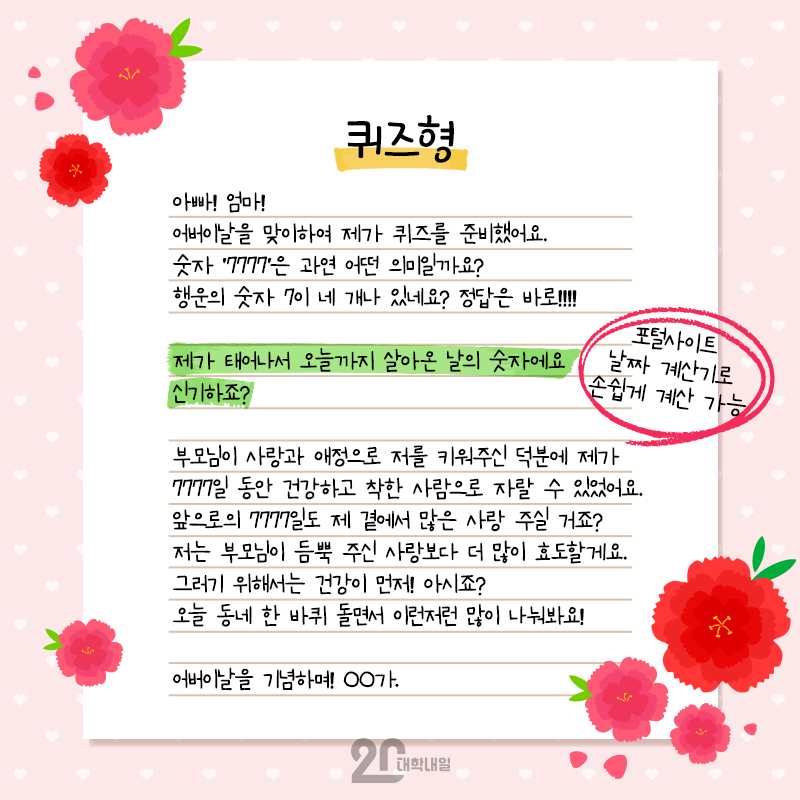 퀴즈형
아빠! 엄마!
어버이날을 맞이하여 제가 퀴즈를 준비했어요.
숫자 '7777'은 과연 어떤 의미일까요?
행운의 숫자 7이 네 개나 있네요? 정답은 바로!!!!
제가 태어나서 오늘까지 살아온 날의 숫자에요
신기하죠?
포털사이트
날짜 계산기로
손쉽게 계산 가능
부모님이 사랑과 애정으로 저를 키워주신 덕분에 제가
7777일 동안 건강하고 착한 사람으로 자랄 수 있었어요.
앞으로의 7777일도 제 곁에서 많은 사랑 주실 거죠?
저는 부모님이 듬뿍 주신 사랑보다 더 많이 효도할게요.
그러기 위해서는 건강이 먼저! 아시죠?
오늘 동네 한 바퀴 돌면서 이런저런 많이 나눠봐요!
어버이날을 기념하며! ○○가.
20 대학내일